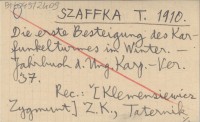 SZAFFKA T. 1910.
Die erste Besteigung des Kar-
funkelturmes im Winter. —
Jahrbuch d. Ung. Karp.-Ver.
37.
Rec.: "[Klemensiewicz
Zygmunt] Z.K., Taternik